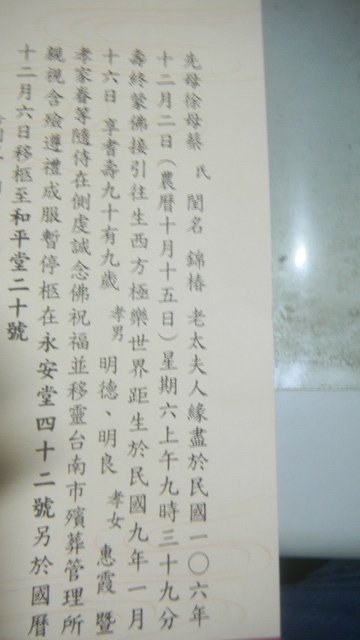 先母徐母蔡 氏 閨名 錦椿 老太夫人緣盡於民國一〇六年
十二月二日(農曆十月十五日)星期六上午九時三十九分
壽終蒙佛接引往生西方極樂世界距生於民國九年一月
十六日 享耆壽九十有九歲 孝男 明德、明良 孝女 惠霞 暨
孝家眷等隨侍在側虔誠念佛祝福並移靈台南市殯葬管理所
親視含殮遵禮成服暫停柩在永安堂四十二號另於國曆
十二月六日移柩至和平堂二十號